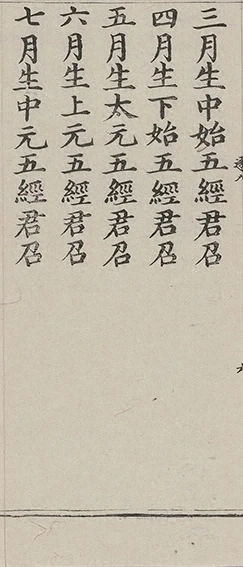 三月生中始五經君召
四月生下始五經君召
五月生太元五經君召
六月生上元五經君召
七月生中元五經君召